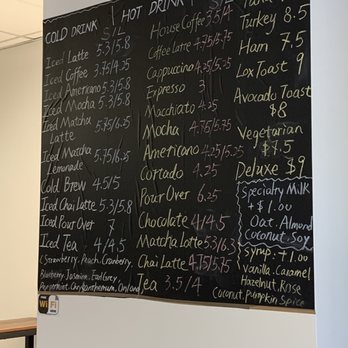 COLD DRINK S/L
Iced Latte 5.3/5.8
Iced Coffee 3.75/4.25
Iced Americano 5.3/5.8
Iced Mocha 5.3/5.8
Iced Matcha Latte 5.75/6.25
Iced Matcha Lemonade 5.75/6.25
Cold Brew 4.5/5
Iced Chai Latte 5.3/5.8
Iced Pour Over 7
Iced Tea 4/4.5
(Strawberry, Peach, Cranberry,
Blueberry, Jasmine, Earl Grey,
Peppermint, Chrysanthemum,
HOT DRINK S/L
House Coffee 3.5/4
Coffee Latte 4.75/5.75
Cappuccino 4.25/5.25
Expresso 3
Macchiato 4.25
Mocha 4.75/5.75
Americano 4.25/5.25
Cortado 4.25
Pour Over 6.25
Chocolate 4/4.5
Matcha Latte 5.3/6.3
Chai Latte 4.75/5.75
Tea 3.5/4
Turkey 8.5
Ham 7.5
Lox Toast 9
Avocado Toast
$8
Vegetarian
$7.5
Deluxe $9
Specialty Milk
+$1.00
Oat, Almond
Coconut, Soy
Syrup +1.00
Vanilla, Caramel
Hazelnut, Rose
Coconut, Pumpkin Spice
WiFi